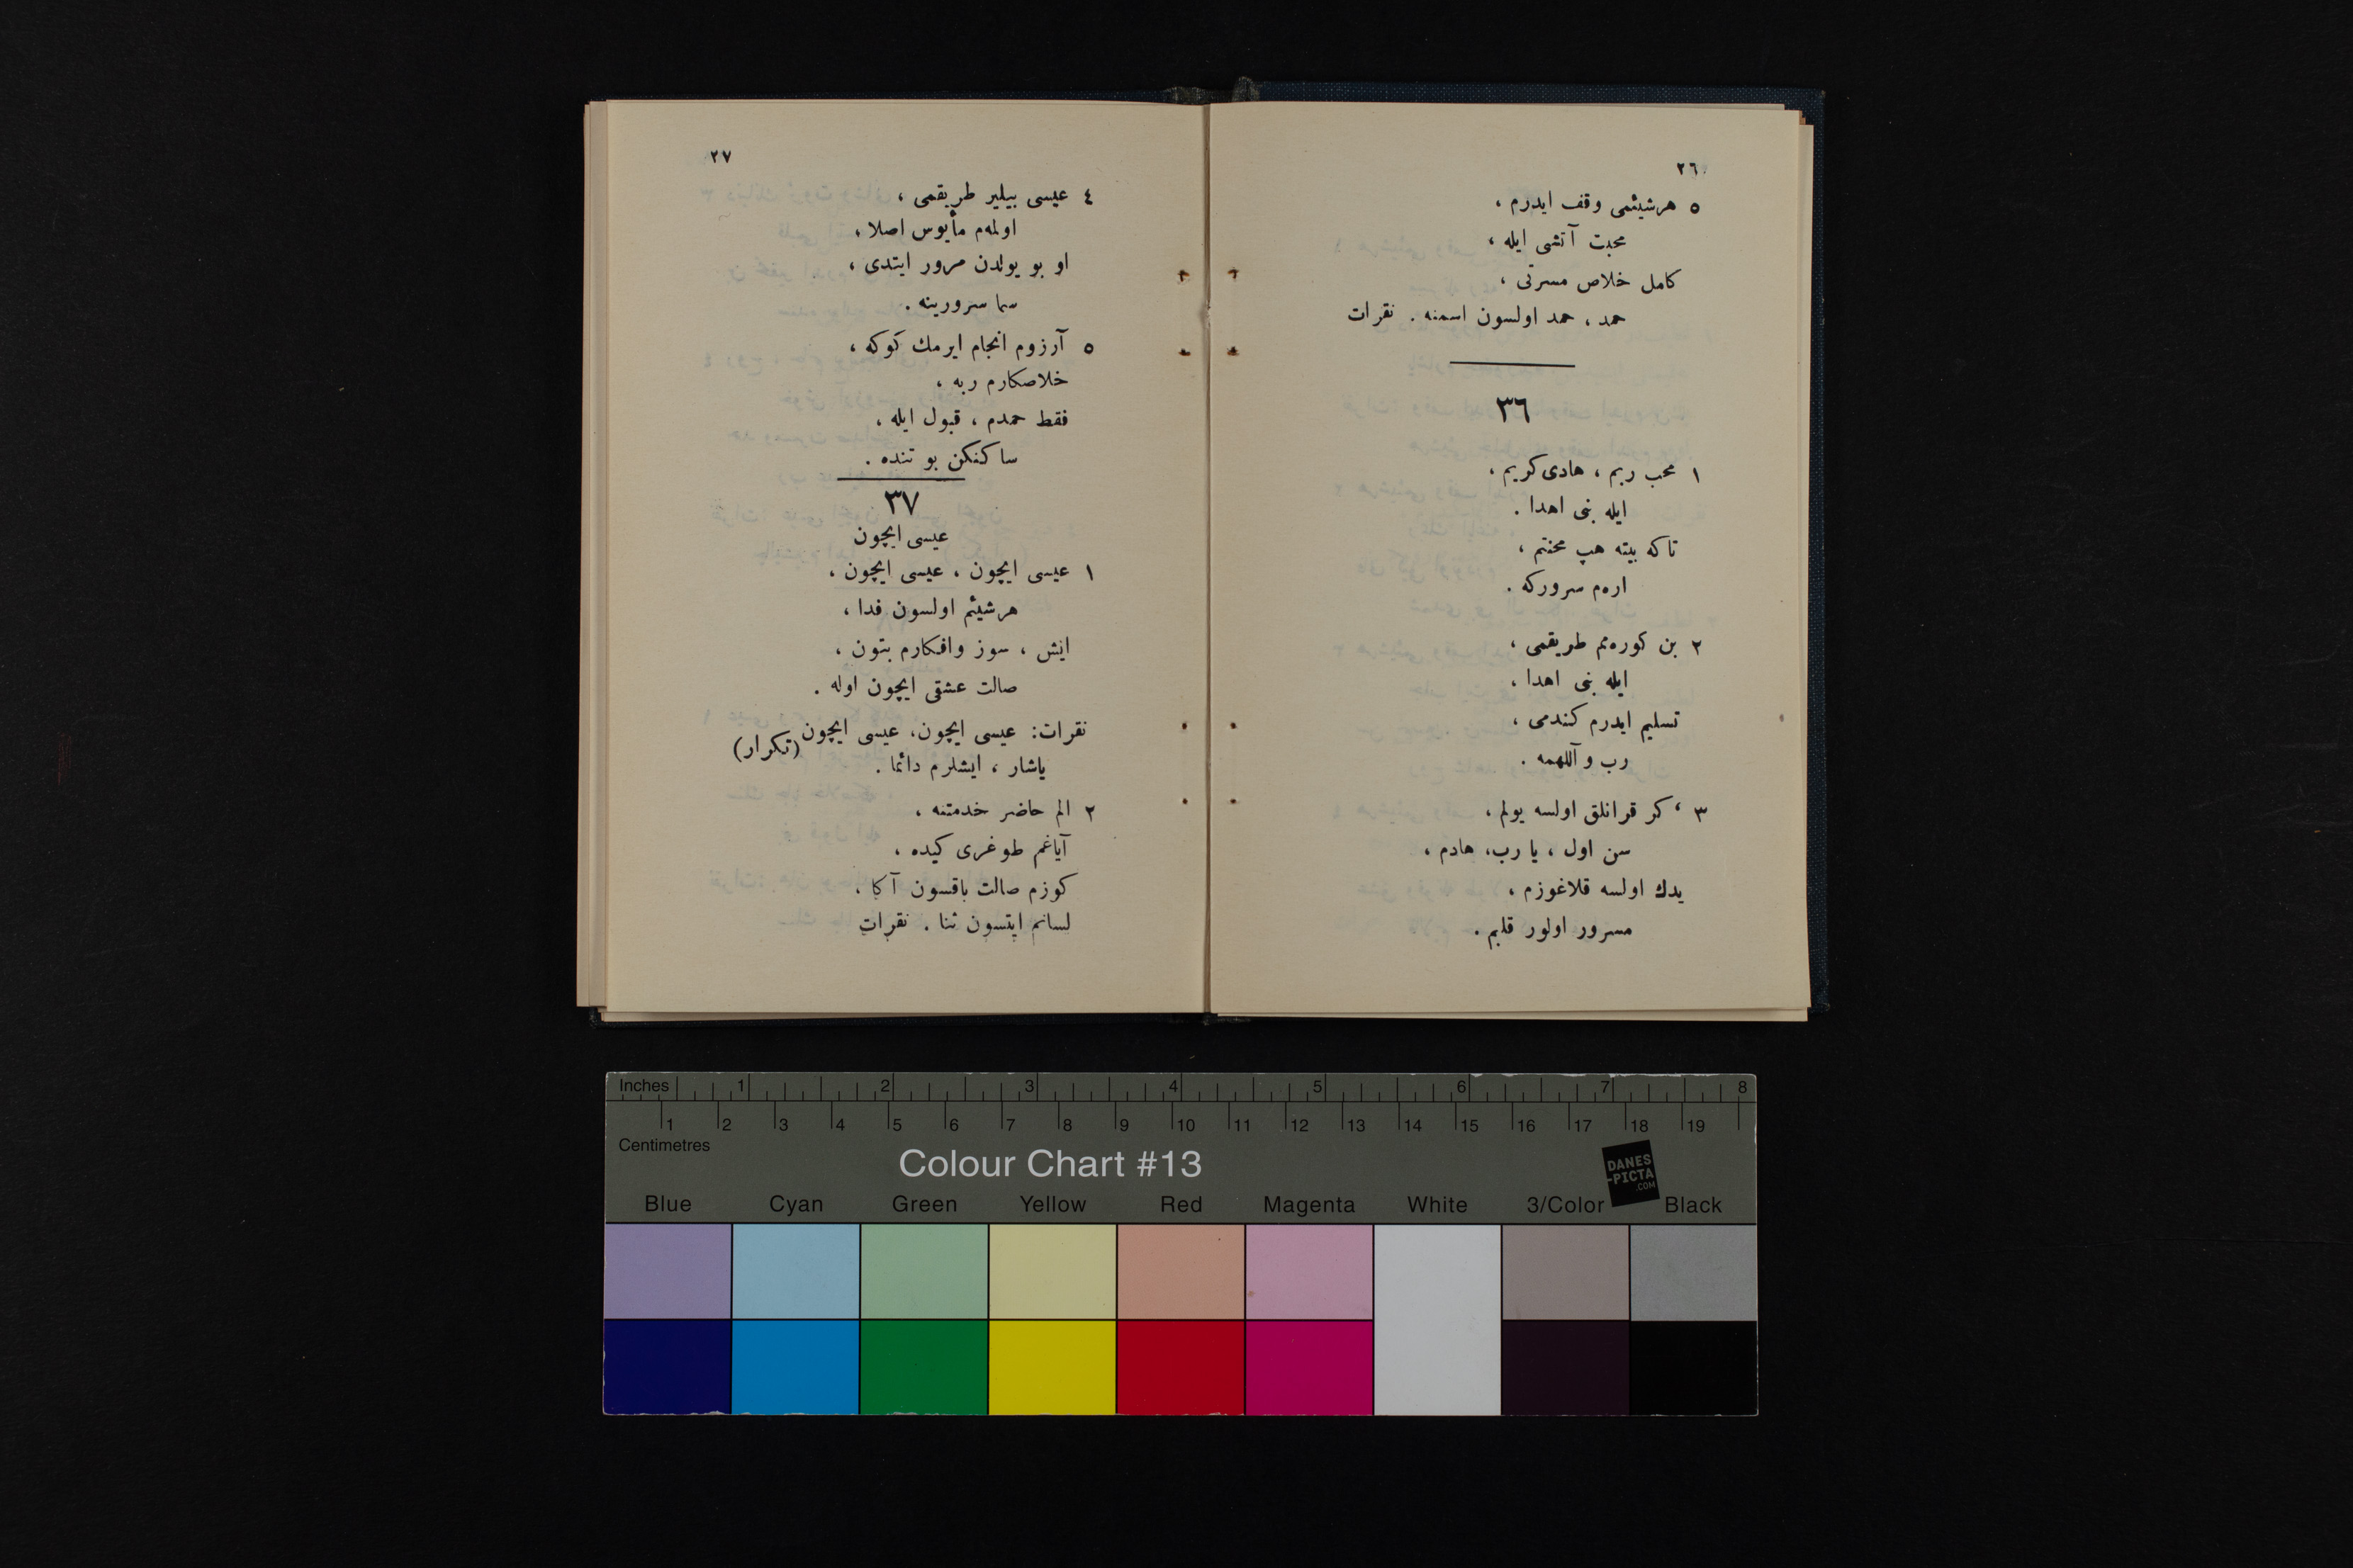 ٢٦
٥ هرشیئمی وقف ایدرم ،
محبت آتشی ایله ،
كامل خلاص مسرتی ،
حمد ، حمد اولسون اسمنه . نقرات
٣٦
١ محب ربم ، هادی كریم ،
ایله بنی اهدا .
تاكه بیته هپ محنتم ،
ارەم سروركه .
٢ بن كورەمم طریقمی ،
ایله بنی اهدا ،
تسلیم ایدرم كندمی ،
رب و آللهمه .
٣ ، كر قرانلق اولسه یولم ،
سن اول ، یا رب، هادم ،
یدك اولسه قلاغوزم ،
مسرور اولور قلبم .
٢٧
٤ عیسی بیلیر طریقمی ،
اولمەم مأیوس اصلا ،
او بو یولدن مرور ایتدی ،
سما سرورینه .
٥ آرزوم انجام ایرمك كوكه ،
خلاصكارم ربه ،
فقط حمدم ، قبول ایله ،
ساكنكن بو تنده .
٣٧
عیسی ایچون
١ عیسی ایچون ، عیسی ایچون ،
هرشیئم اولسون فدا ،
ایش ، سوز وافكارم بتون ،
صالت عشقی ایچون اوله .
نقرات: عیسی ایچون، عیسی ایچون (تكرار)
یاشار ، ایشلرم دائما .
٢ الم حاضر خدمتنه ،
آیاغم طوغری كیده ،
كوزم صالت باقسون آكا ،
لسانم ایتسون ثنا . نقرات
Inches 1 2 3 4 5 6 7 8
1 2 3 4 5 6 7 8 9 10 11 12 13 14 15 16 17 18 19
Centimetres
Colour Chart #13
DANES
-PICTA
.COM
Blue Cyan Green Yellow Red Magenta White 3/Color Black